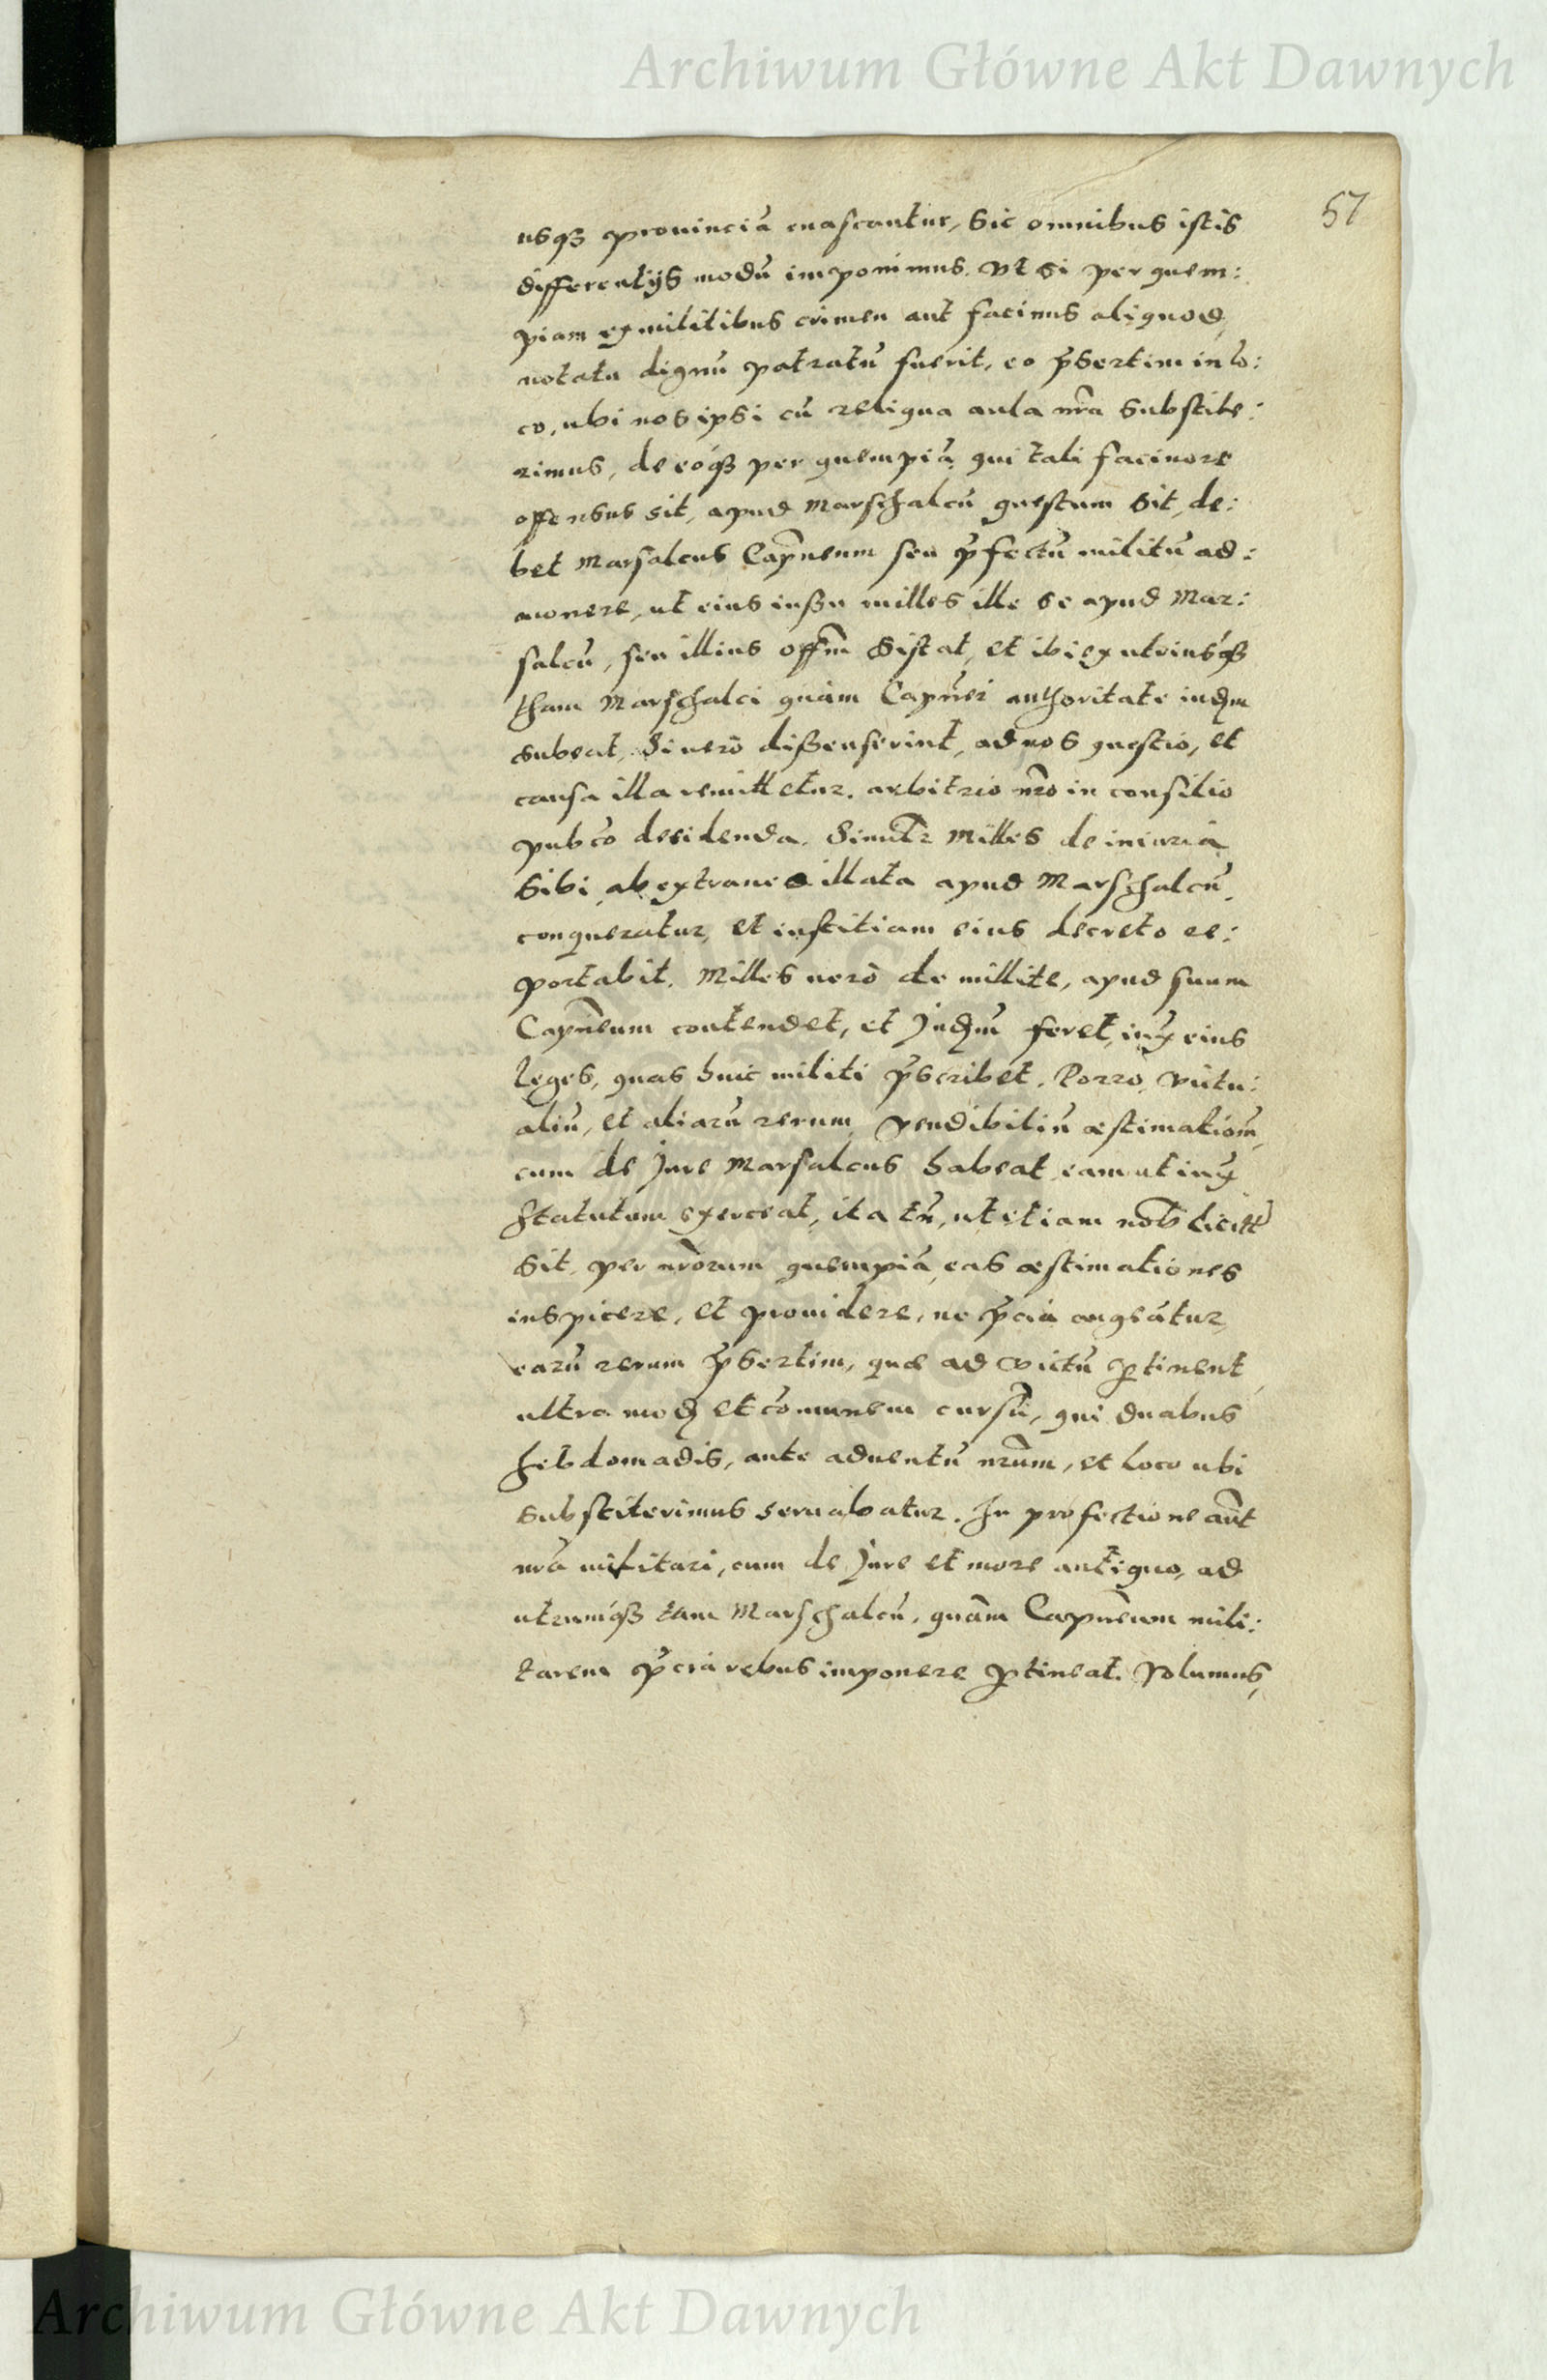 Archiwum Główne Akt Dawnych
57
usqȝ prouinciā enascantur, Sic omnibus istis
differentijs modū imponimus. Vt si per quem:
piam ex militibus crimen aut facinus aliquod
notatu dignū patratū fuerit, eo p̄sertim in lo:
co, ubi nos ipsi cū reliqua aula nr̄a substite:
rimus, de eóqȝ per quempiā, qui tali facinore
offensus sit, apud Marschalcū questum sit, de:
bet Marsalcus Capn̄eum seu p̄fectū militū ad:
monere, ut eius iussu milles ille se apud Mar:
salcū, seu illius off̄m sistat, et ibi ex utriusqȝ
tham Marschalci quàm Capn̄ei authoritate iudm
subeat, Si uerò dißenserint, ad nos questio, et
causa illa remittetur. arbitrio nr̄o in consilio
pub̄co decidenda. Simil̄r Milles de iniuria
Sibi ab extraneo illata apud Marschalcū
conqueratur, et iustitiam eius decreto re:
portabit. Milles uerò de millite, apud suum
Capn̄eum contendet, et Judm̄ feret, iux̄ eius
leges, quas huic militi p̄scribet. Porro, victu:
aliū, et aliarū rerum vendibiliū æstimatiom̄,
cum de Jure Marsalcus habeat, eam ut iux̄
statutum exerceat, ita tn̄, ut etiam nob̄
sit, per nr̄orum quempiā eas æstimationes
inspicere, et prouidere, ne p̄cia augeātur,
earū rerum p̄sertim, quæ ad victū ꝑtinent
ultra mod et com̄unem cursū, qui duabus
hebdomadis, ante aduentū nr̄um, et loco ubi
substiterimus seruabatur. In profectione aūt
nr̄a militari, cum de Jure et more antiquo, ad
utrumqȝ tam Marschalcū, quàm Capn̄eum mili:
tarem p̄cia rebus imponere ꝑtineat. Volumus,
Archiwum Główne Akt Dawnych